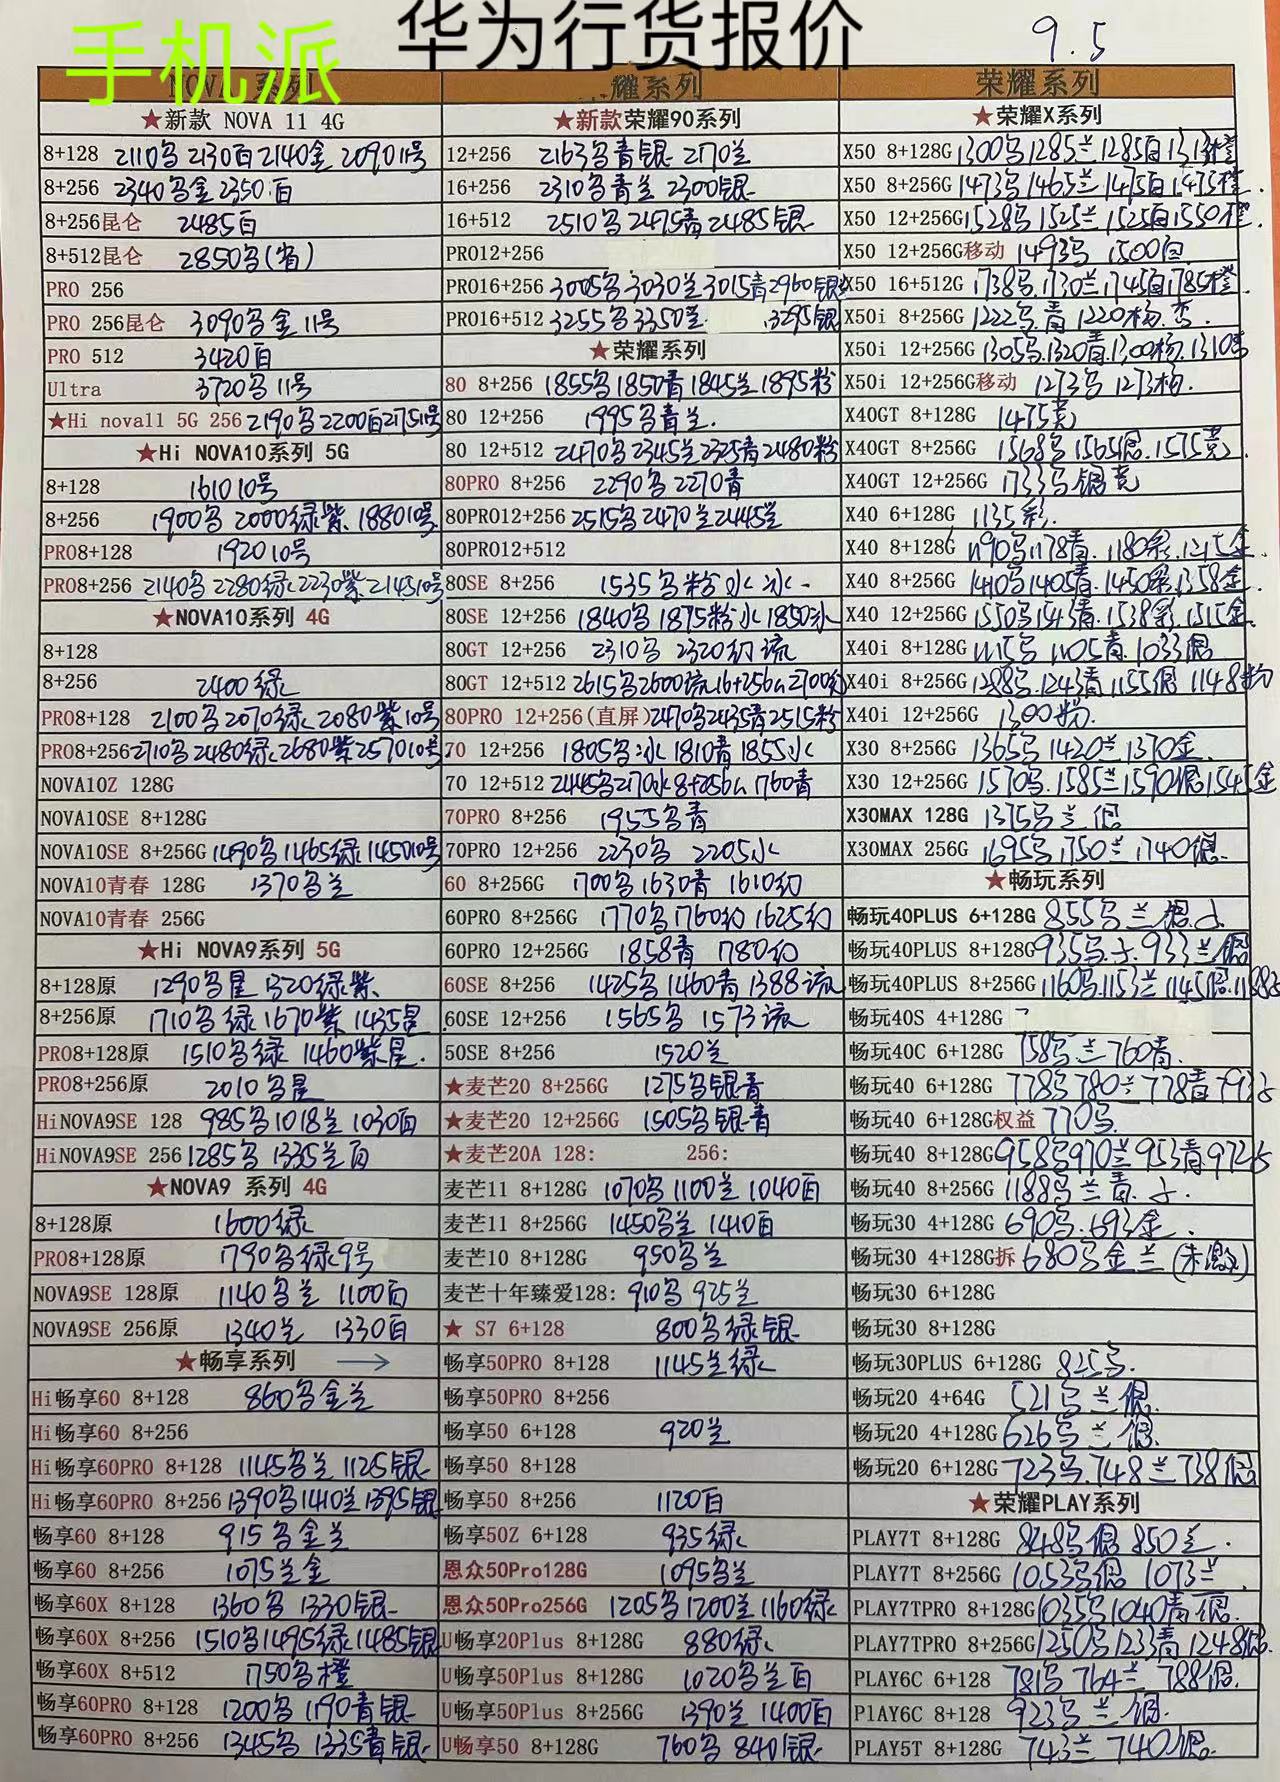 手机派
华为行货报价
9.5
NOVA 系列
★新款 NOVA 11 4G
8+128 2110乌 2130白 2140金 2090 11号
8+256 2340乌金 2350.白
8+256昆仑 2485白
8+512昆仑 2850乌(省)
PRO 256
PRO 256昆仑 3090乌金 11号
PRO 512 3420白
Ultra 3720乌 11号
★Hi nova11 5G 256 2190乌 2200白 2175 11号
★Hi NOVA10系列 5G
8+128 1610 10号
8+256 1900乌 2000绿紫 1880 10号
PRO8+128 1920 10号
PRO8+256 2140乌 2280绿 2230紫 2145 10号
★NOVA10系列 4G
8+128
8+256 2400绿
PRO8+128 2100乌 2070绿 2080紫 10号
PRO8+256 2710乌 2480绿 2680紫 2570 10号
NOVA10Z 128G
NOVA10SE 8+128G
NOVA10SE 8+256G 1490乌 1465绿 1450 10号
NOVA10青春 128G 1370乌兰
NOVA10青春 256G
★Hi NOVA9系列 5G
8+128原 1290乌星 1320绿紫
8+256原 1710乌绿 1670紫 1435星
PRO8+128原 1510乌绿 1460紫星.
PRO8+256原 2010乌星
HiNOVA9SE 128 985乌 1018兰 1030白
HiNOVA9SE 256 1285乌 1335兰白
★NOVA9 系列 4G
8+128原 1600绿
PRO8+128原 1790乌绿 9号
NOVA9SE 128原 1140乌兰 1100白
NOVA9SE 256原 1340兰 1330白
★畅享系列 →
Hi畅享60 8+128 860乌金兰
Hi畅享60 8+256
Hi畅享60PRO 8+128 1145乌兰 1125银
Hi畅享60PRO 8+256 1390乌 1410兰 1395银
畅享60 8+128 915乌金兰
畅享60 8+256 1075兰金
畅享60X 8+128 1360乌 1330银
畅享60X 8+256 1510乌 1495绿 1485银
畅享60X 8+512 1750乌橙
畅享60PRO 8+128 1200乌 1190青银
畅享60PRO 8+256 1345乌 1335青银
耀系列
★新款荣耀90系列
12+256 2163乌青银 2170兰
16+256 2310乌青兰 2300银
16+512 2510乌 2475青 2485银
PRO12+256
PRO16+256 3005乌 3030兰 3015青 2960银
PRO16+512 3255乌 3350兰 3295银
★荣耀系列
80 8+256 1855乌 1850青 1845兰 1895粉
80 12+256 1995乌青兰.
80 12+512 2470乌 2345兰 2325青 2480粉
80PRO 8+256 2290乌 2270青
80PRO12+256 2515乌 2470兰 2445
80PRO12+512
80SE 8+256 1535乌粉冰
80SE 12+256 1840乌 1875粉冰 1850冰
80GT 12+256 2310乌 2320幻流
80GT 12+512 2615乌 2600流 16+256 2700幻
80PRO 12+256(直屏) 2470乌 2435青 2515粉
70 12+256 1805乌冰 1810青 1855冰
70 12+512 2445乌 2170冰 8+256 1760青
70PRO 8+256 1955乌青
70PRO 12+256 2230乌 2205冰
60 8+256G 1700乌 1630青 1610幻
60PRO 8+256G 1770乌 1760幻 1625幻
60PRO 12+256G 1858青 1780幻
60SE 8+256 1425乌 1460青 1388流
60SE 12+256 1565乌 1573流
50SE 8+256 1520兰
★麦芒20 8+256G 1275乌银青
★麦芒20 12+256G 1505乌银青
★麦芒20A 128: 256:
麦芒11 8+128G 1070乌 1100兰 1040白
麦芒11 8+256G 1450乌兰 1410白
麦芒10 8+128G 950乌兰
麦芒十年臻爱128: 910乌 925兰
★ S7 6+128 800乌绿银
畅享50PRO 8+128 1145兰绿
畅享50PRO 8+256
畅享50 6+128 920兰
畅享50 8+128
畅享50 8+256 1120白
畅享50Z 6+128 935绿
恩众50Pro128G 1095乌兰
恩众50Pro256G 1205乌 1200兰 1160绿
U畅享20Plus 8+128G 880绿
U畅享50Plus 8+128G 1020乌兰白
U畅享50Plus 8+256G 1390兰 1400白
U畅享50 8+128G 760乌 840银
荣耀系列
★荣耀X系列
X50 8+128G 1300乌 1285兰 1285白 1313橙
X50 8+256G 1473乌 1465兰 1475白 1475橙
X50 12+256G 1528乌 1525兰 1525白 1550橙
X50 12+256G移动 1493乌 1500白
X50 16+512G 1738乌 1730兰 1745白 1785橙
X50i 8+256G 1222乌.青 1220杨.
X50i 12+256G 1305乌 1320青 1300杨 1310
X50i 12+256G移动 1273乌 1273杨
X40GT 8+128G 1475竞
X40GT 8+256G 1568乌 1565银 1575竞
X40GT 12+256G 1733乌银竞
X40 6+128G 1135彩.
X40 8+128G 1190乌 1178青 1180彩 1215金
X40 8+256G 1410乌 1405青 1450彩 1358金
X40 12+256G 1550乌 1543青 1538彩 1515金
X40i 8+128G 1115乌 1105青 1033银
X40i 8+256G 1288乌 1243青 1155银 1148粉
X40i 12+256G 1300粉.
X30 8+256G 1365乌 1420兰 1370金
X30 12+256G 1570乌 1585兰 1590银 1545金
X30MAX 128G 1375乌兰银
X30MAX 256G 1695乌 1750兰 1740银
★畅玩系列
畅玩40PLUS 6+128G 855乌兰银
畅玩40PLUS 8+128G 935乌 933兰银
畅玩40PLUS 8+256G 1160乌 1153兰 1145银
畅玩40S 4+128G
畅玩40C 6+128G 758乌兰 760青.
畅玩40 6+128G 778乌 780兰 778青 793
畅玩40 6+128G权益 770乌
畅玩40 8+128G 958乌 970兰 953青 972
畅玩40 8+256G 1188乌兰青
畅玩30 4+128G 690乌.693金.
畅玩30 4+128G拆 680乌金兰(未激)
畅玩30 6+128G
畅玩30 8+128G
畅玩30PLUS 6+128G 825乌.
畅玩20 4+64G 521乌兰银
畅玩20 4+128G 626乌兰银
畅玩20 6+128G 723乌.748兰 738银
★荣耀PLAY系列
PLAY7T 8+128G 848乌银 850兰.
PLAY7T 8+256G 1053乌银 1073兰
PLAY7TPRO 8+128G 1035乌 1040青银
PLAY7TPRO 8+256G 1250乌 1233青 1248银
PLAY6C 6+128 781乌 764兰 788银
PlAY6C 8+128 923乌兰银
PLAY5T 8+128G 743兰 740银